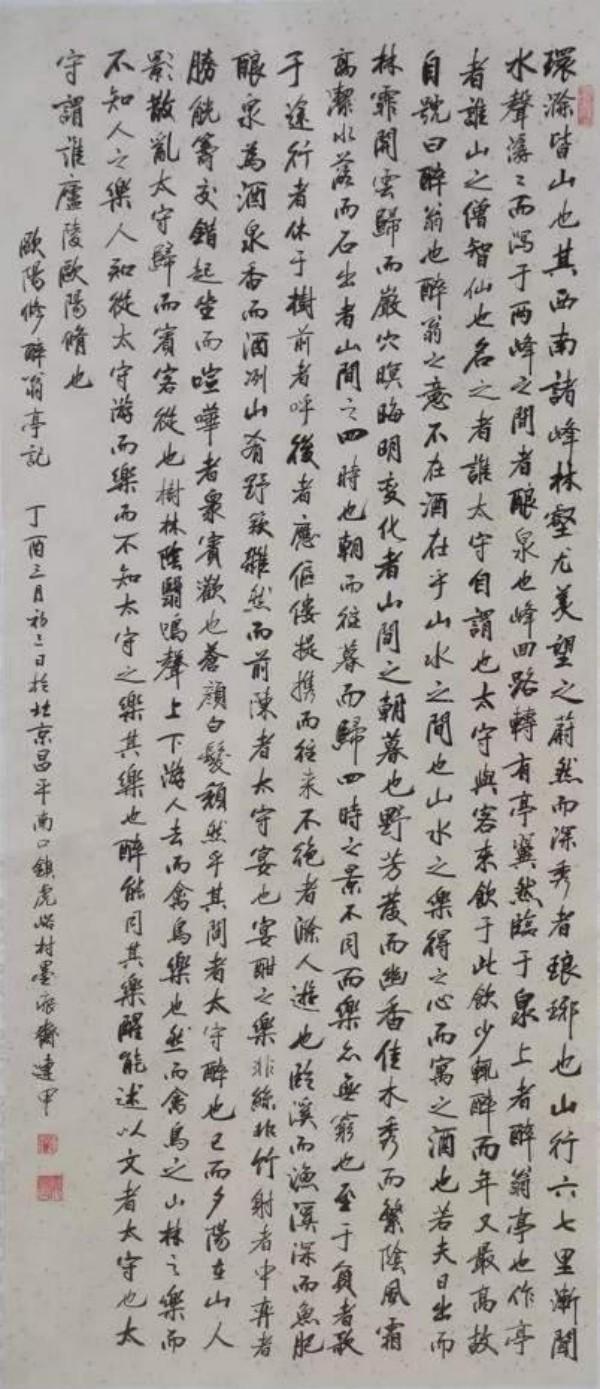 環滁皆山也其西南諸峰林壑尤美望之蔚然而深秀者琅琊也山行六七里漸聞
水聲潺〻而瀉于兩峰之間者釀泉也峰回路轉有亭翼然臨于泉上者醉翁亭也作亭
者誰山之僧智仙也名之者誰太守自謂也太守與客來飲于此飲少輒醉而年又最高故
自號曰醉翁也醉翁之意不在酒在乎山水之間也山水之樂得之心而寓之酒也若夫日出而
林霏開雲歸而巖穴暝晦明變化者山間之朝暮也野芳發而幽香佳木秀而繁陰風霜
高潔水落而石出者山間之四時也朝而往暮而歸四時之景不同而樂亦無窮也至于負者歌
于途行者休于樹前者呼後者應傴僂提攜而往來不絕者滁人遊也臨溪而漁溪深而魚肥
釀泉為酒泉香而酒冽山肴野蔌雜然而前陳者太守宴也宴酣之樂非絲非竹射者中弈者
勝觥籌交錯起坐而喧嘩者衆賓歡也蒼顏白髮頹然乎其間者太守醉也已而夕陽在山人
影散亂太守歸而賓客從也樹林陰翳鳴聲上下游人去而禽鳥樂也然而禽鳥之山林之樂而
不知人之樂人知從太守游而樂而不知太守之樂其樂也醉能同其樂醒能述以文者太守也太
守謂誰廬陵歐陽脩也
歐陽修醉翁亭記 丁酉三月初二日於北京昌平南口鎮虎峪村墨 齋連甲